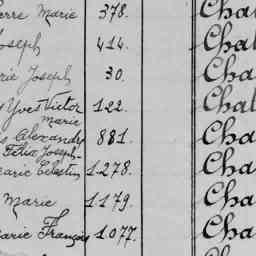 erre Marie 378. Chal
Joseph 414. Chal
rie Joseph 30. Cha
Yves Victor 122. Chal
Marie
Alexandre 881. Cha
Félix Joseph
arie Célestin 1.278. Cha
Marie 1.179. Cha
arie François 1.077. Cha